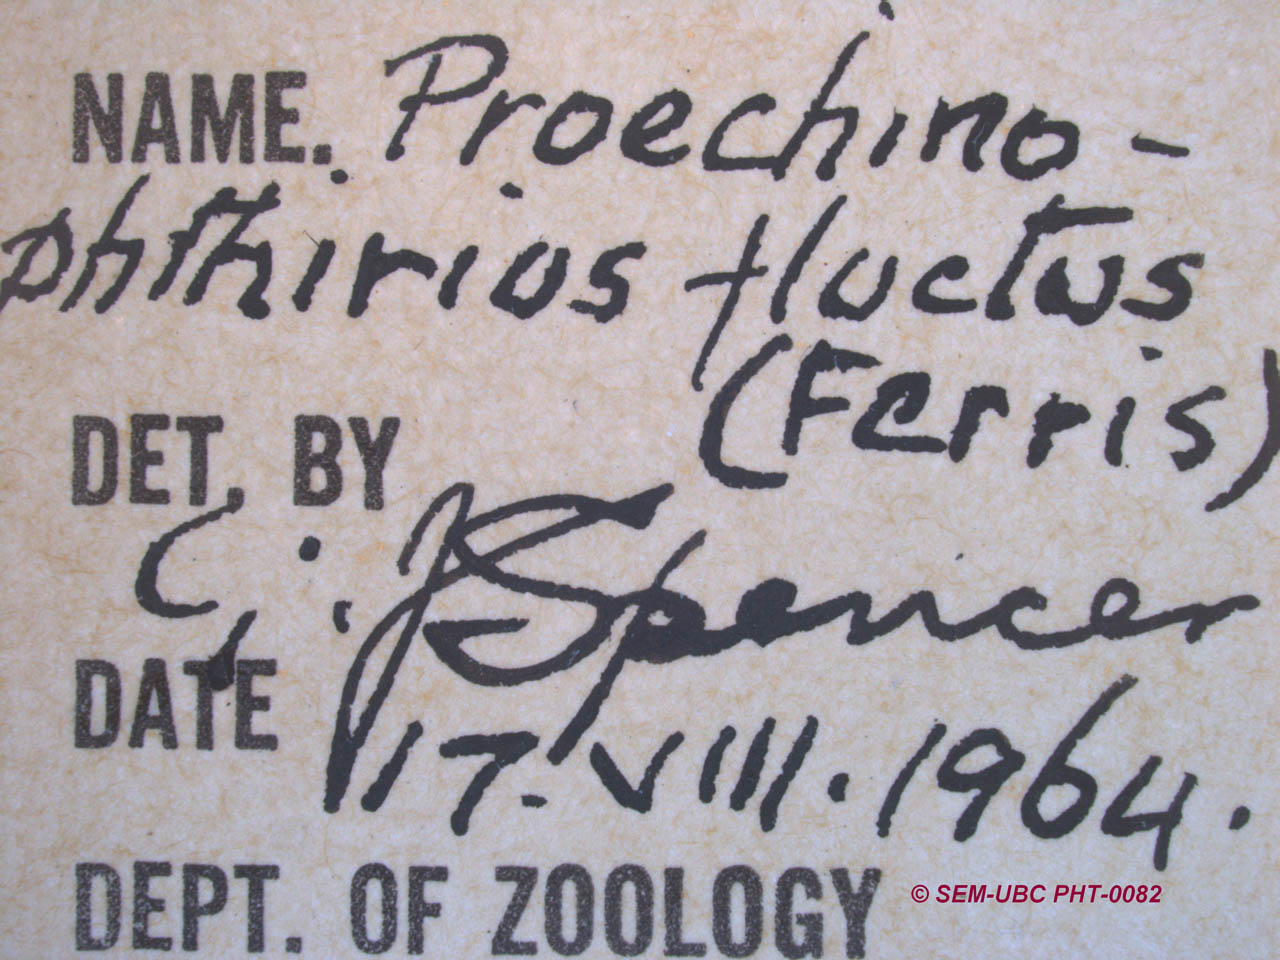 NAME. Proechino-
phthirios fluctus
(Ferris)
DET. BY
G. J Spencer
DATE 17. VIII. 1964.
DEPT. OF ZOOLOGY
© SEM-UBC PHT-0082